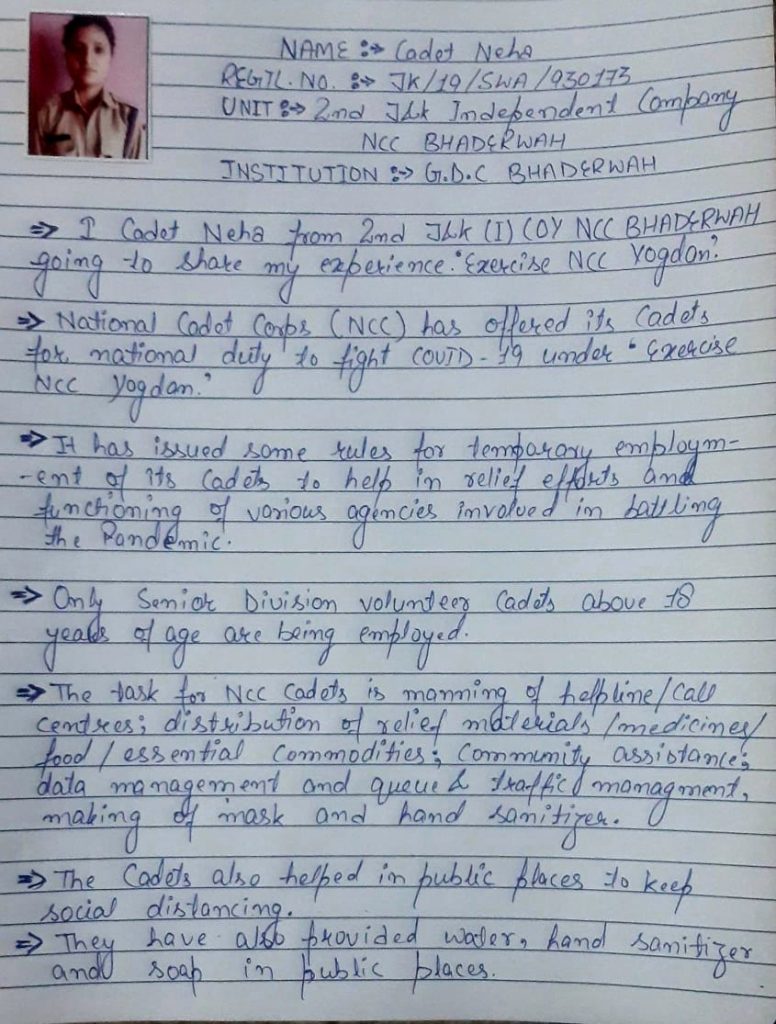 NAME :→ Cadet Neha
REGTL. NO. :→ JK/19/SWA/930173
UNIT :→ 2nd J&K Independent Company
NCC BHADERWAH
INSTITUTION :→ G.D.C BHADERWAH
⇒ I Cadet Neha from 2nd J&k (I) COY NCC BHADERWAH
going to share my experience "Exercise NCC Yogdan."
⇒ National Cadet Corps (NCC) has offered its Cadets
for national duty to fight COVID-19 under "Exercise
NCC Yogdan."
⇒ It has issued some rules for temparary employm-
-ent of its Cadets to help in relief efforts and
functioning of various agencies involved in battling
the Pandemic.
⇒ Only Senior Division volunteer Cadets above 18
years of age are being employed.
⇒ The task for NCC Cadets is manning of helpline/call
centres; distribution of relief materials/medicines/
food/essential commodities; Community assistance;
data management and queue & traffic managment,
making of mask and hand sanitizer.
⇒ The Cadets also helped in public places to keep
social distancing.
⇒ They have also provided water, hand sanitizer
and soap in public places.